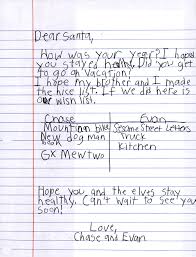 Dear Santa,
How was your year? I hope
you stayed healthy. Did you get
to go on vacation?
I hope my brother and I made
the nice list. If we did here is
our wish list.
Chase Evan
Mountain bike Sesame Street Letters
New dog man book Truck
GX Mewtwo Kitchen
Hope you and the elves stay
healthy. Can't wait to see you
soon!
Love,
Chase and Evan